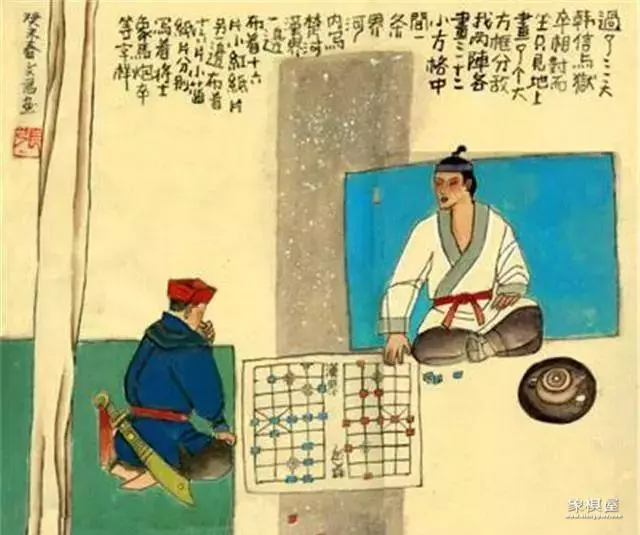 過了二三天
韩信与獄
卒相對而
坐只見地上
畫了个大
方框分敌
我两陣各
畫三十二
小方格中
間一
条
界
河
内写
楚河
漢界
一邊
布着十六
片小紅紙片
另邊布着
十六片小蓝
紙片分别
写着将士
象馬炮卒
等字样
癸未春
漢界
楚河
象棋屋